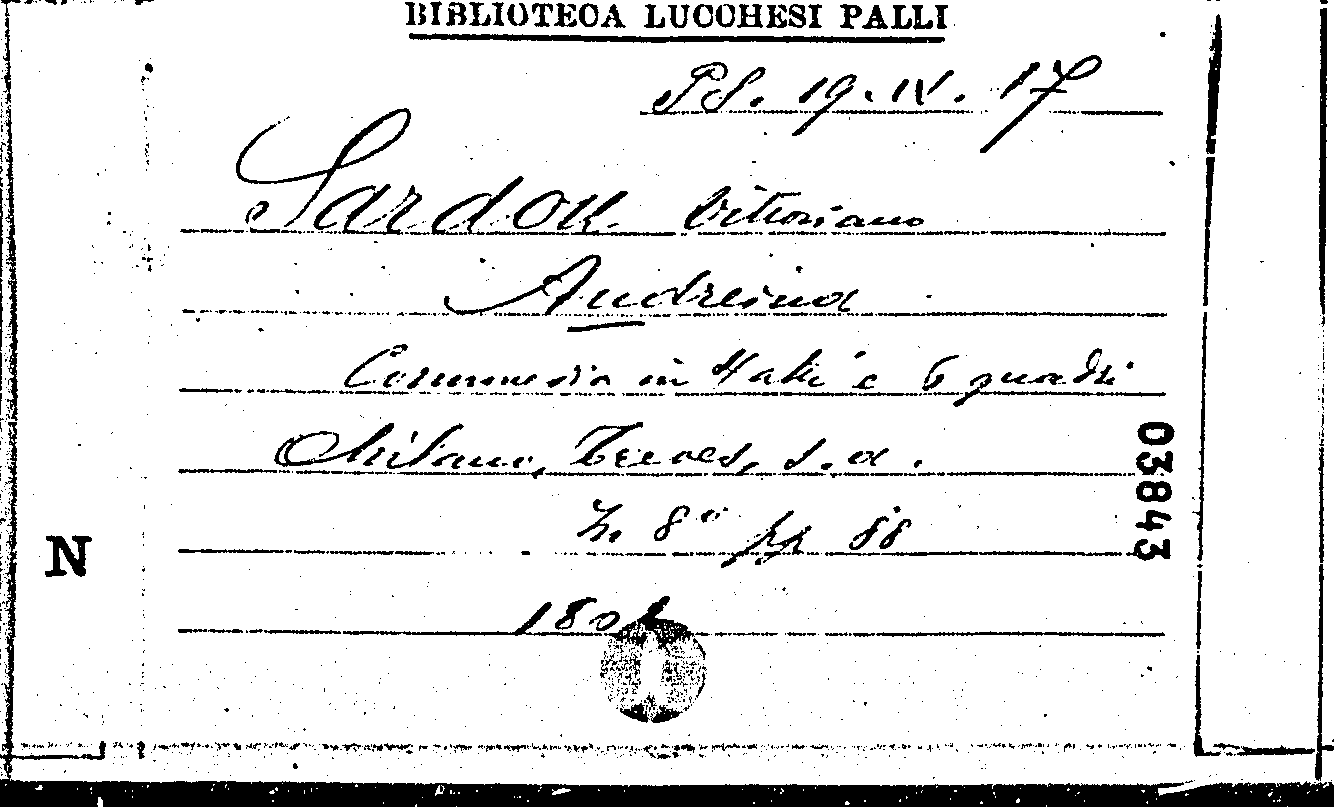 BIBLIOTECA LUCCHESI PALLI
PS. 19. IV. 17
Sardou Vittoriano
Andreina
Commedia in 4 atti e 6 quadri
Milano, Treves, s. a.
In 8° pp 88
03843
N